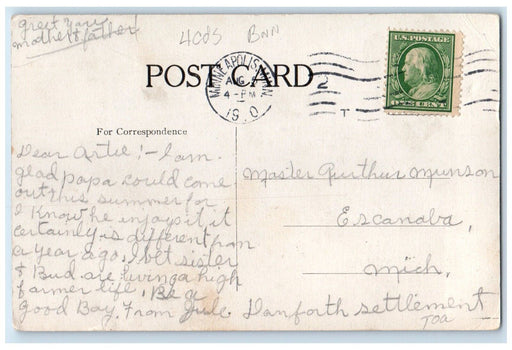 Greet your
mother & father
4CDS Bnn
POST CARD
MINNEAPOLIS, MINN.
AUG
4-PM
1910
2
T
U.S. POSTAGE
ONE CENT
For Correspondence
Dear Artie! - I am
glad papa could come
out this summer for
I know he enjoys it it
certainly is different from
a year ago. I bet sister
& Bud are living a high
farmer life. Be a
Good Boy. From Jule.
Master Arthur Munson
Escanaba,
Mich,
Danforth settlement